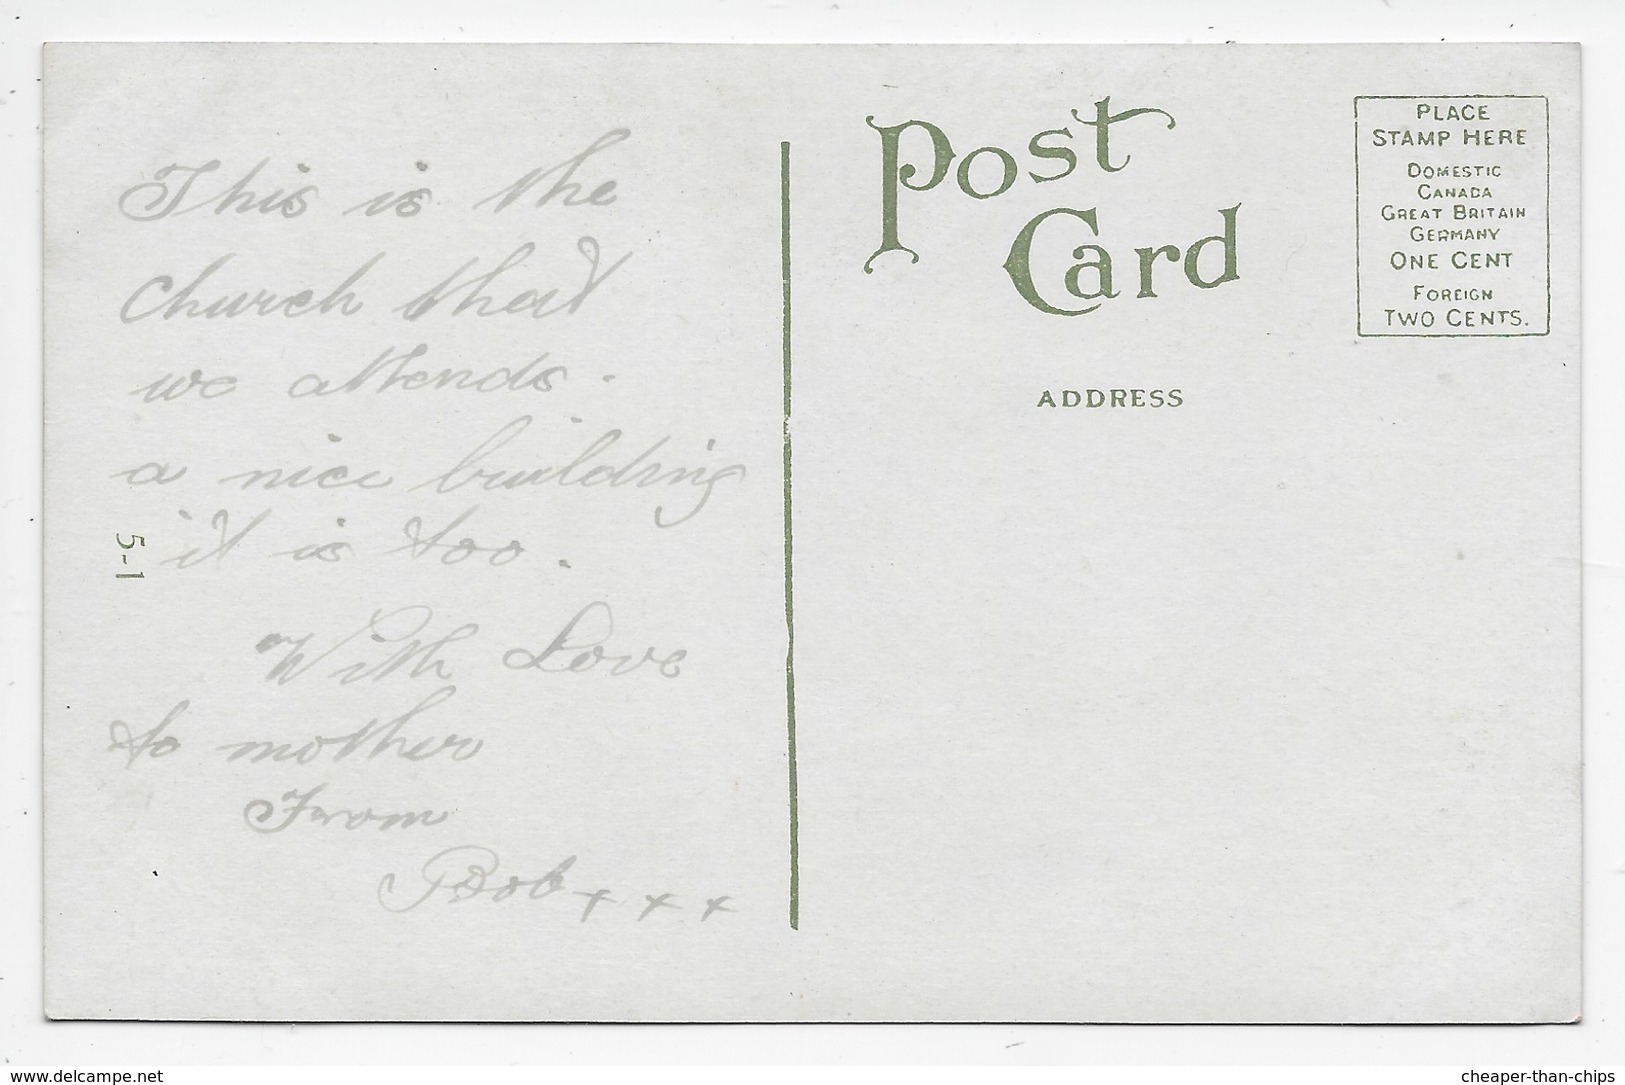 This is the
church that
we attends.
a nice building
it is too.
With Love
to mother
From
Bob x x x
5-1
Post
Card
ADDRESS
PLACE
STAMP HERE
DOMESTIC
CANADA
GREAT BRITAIN
GERMANY
ONE CENT
FOREIGN
TWO CENTS.
www.delcampe.net
cheaper-than-chips